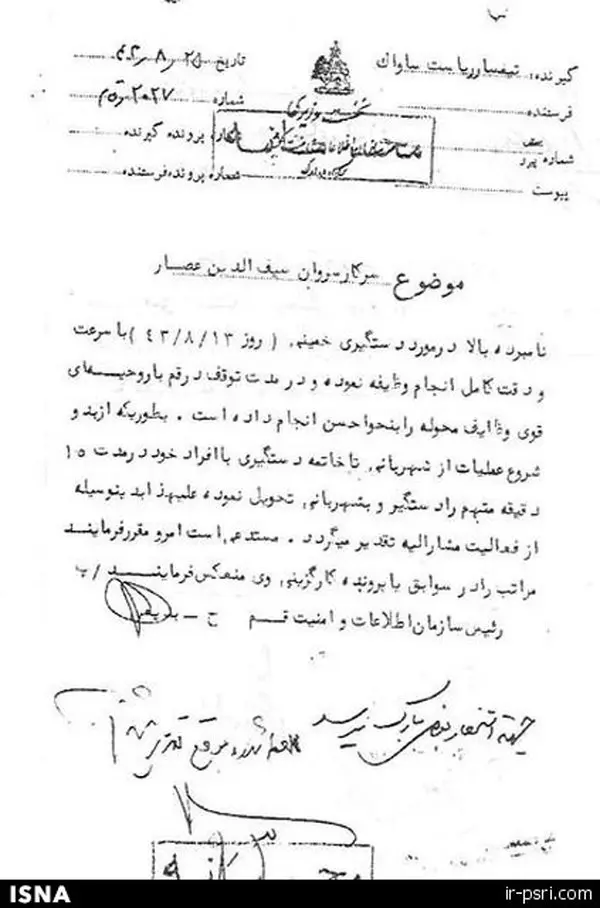 گیرنده: تیمسار ریاست ساواک
تاریخ ۲۵ر۸ر۴۳
فرستنده
شماره ۲۰۲۷
نخست وزیری
شماره پرونده گیرنده
شماره
پیوست
شماره پرونده فرستنده
موضوع سرکار سروان سیف الدین عصار
نامبرده بالا در مورد دستگیری خمینی ( روز ۴۳/۸/۱۳ ) با سرعت
و دقت کامل انجام وظیفه نموده و در مدت توقف در قم با روحیه‌ای
قوی وظایف محوله را بنحو احسن انجام داده است . بطوریکه از بدو
شروع عملیات از شهربانی تا خاتمه دستگیری با افراد خود در مدت ۱۵
دقیقه متهم را دستگیر و بشهربانی تحویل نموده علیهذا بدینوسیله
از فعالیت مشارالیه تقدیر میگردد . مستدعی است امر و مقرر فرمایند
مراتب را در سوابق یا پرونده کارگزینی وی منعکس فرمایند /پ
رئیس سازمان اطلاعات و امنیت قم ح - بدیعی
جهت استحضار
ISNA
ir-psri.com